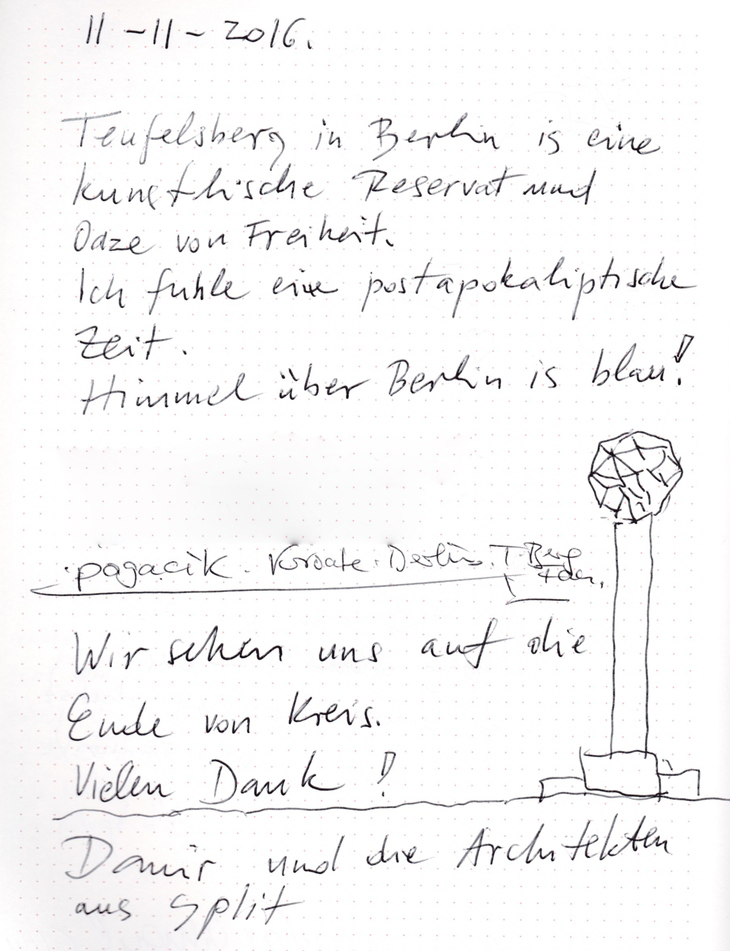 11-11-2016.
Teufelsberg in Berlin is eine
kunstlische Reservat und
Oaze von Freiheit.
Ich fuhle eine postapokaliptische
Zeit.
Himmel über Berlin is blau!
pogacik. Kroate. Berlin. T. Berg
Wir sehen uns auf die
Ende von Kreis.
Vielen Dank!
Damir und die Architekten
aus Split